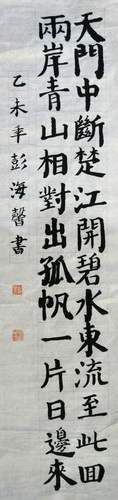 天門中斷楚江開碧水東流至此回
兩岸青山相對出孤帆一片日邊來
乙未年彭海馨書